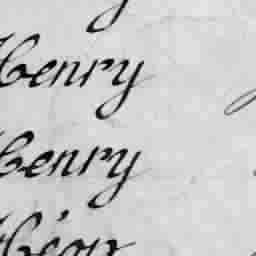 Henry
Henry